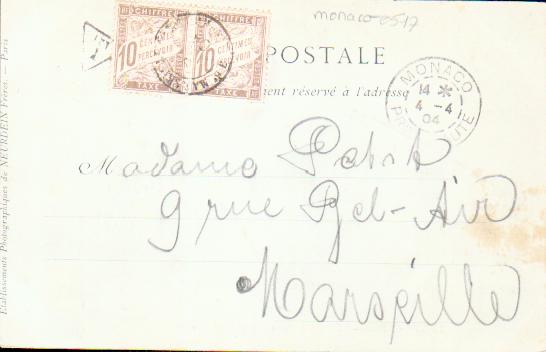 monaco-0517
CHIFFRE CHIFFRE
10 CENTIMES 10 CENTIMES
PERCEVOIR PERCEVOIR
TAXE TAXE
T
POSTALE
ment réservé à l'adresse
MONACO
14 *
4 - 4
04
Madame
9 rue Bel-Air
Marseille
Etablissements Photographiques de NEURDEIN Frères. — Paris